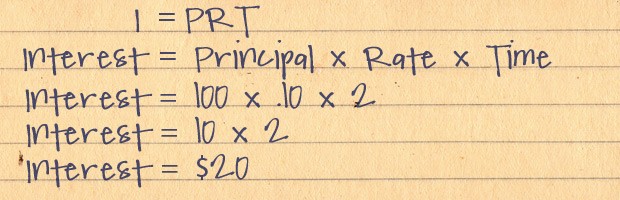 I = PRT
Interest = Principal x Rate x Time
Interest = 100 x .10 x 2
Interest = 10 x 2
Interest = $20